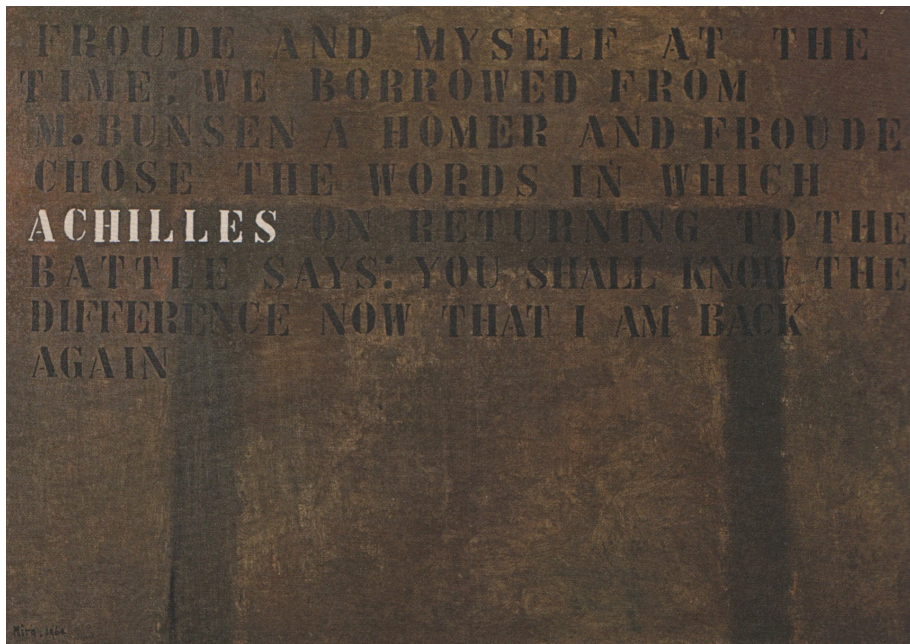 FROUDE AND MYSELF AT THE
TIME: WE BORROWED FROM
M. BUNSEN A HOMER AND FROUDE
CHOSE THE WORDS IN WHICH
ACHILLES ON RETURNING TO THE
BATTLE SAYS: YOU SHALL KNOW THE
DIFFERENCE NOW THAT I AM BACK
AGAIN